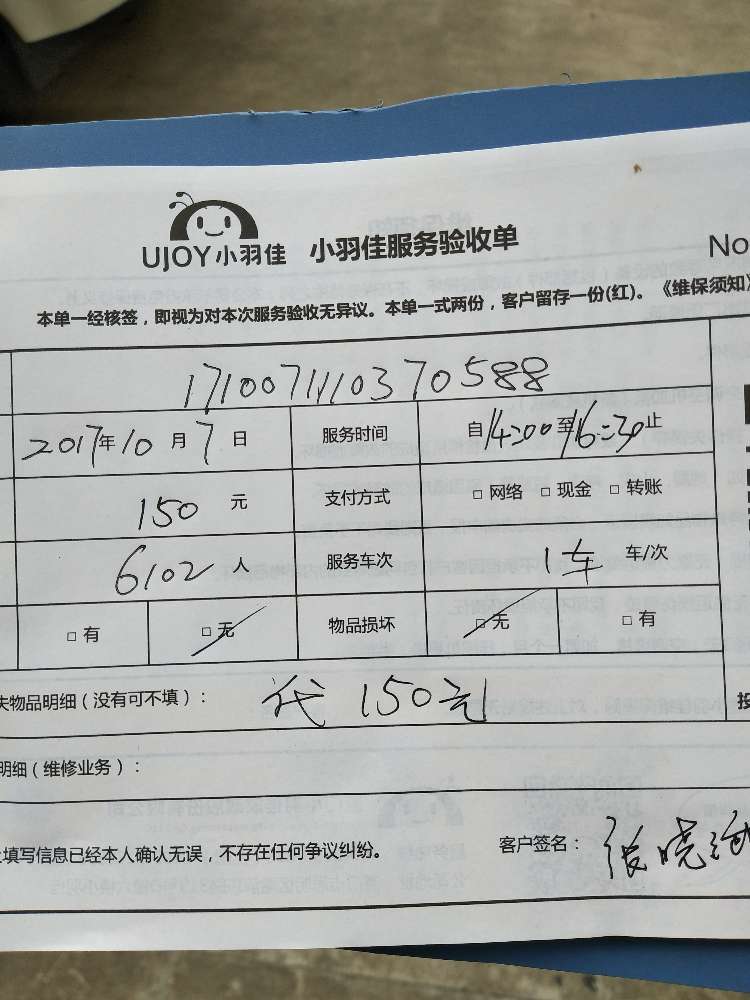 UJOY小羽佳 小羽佳服务验收单
No
本单一经核签，即视为对本次服务验收无异议。本单一式两份，客户留存一份(红)。《维保须知》
1710071110370588
2017年10月7日 服务时间 自14:00至16:30止
150元 支付方式 □网络 □现金 □转账
6102人 服务车次 1车 车/次
□有 □无 物品损坏 □无 □有
失物品明细（没有可不填）： 代150元
明细（维修业务）：
填写信息已经本人确认无误，不存在任何争议纠纷。 客户签名： 张晓